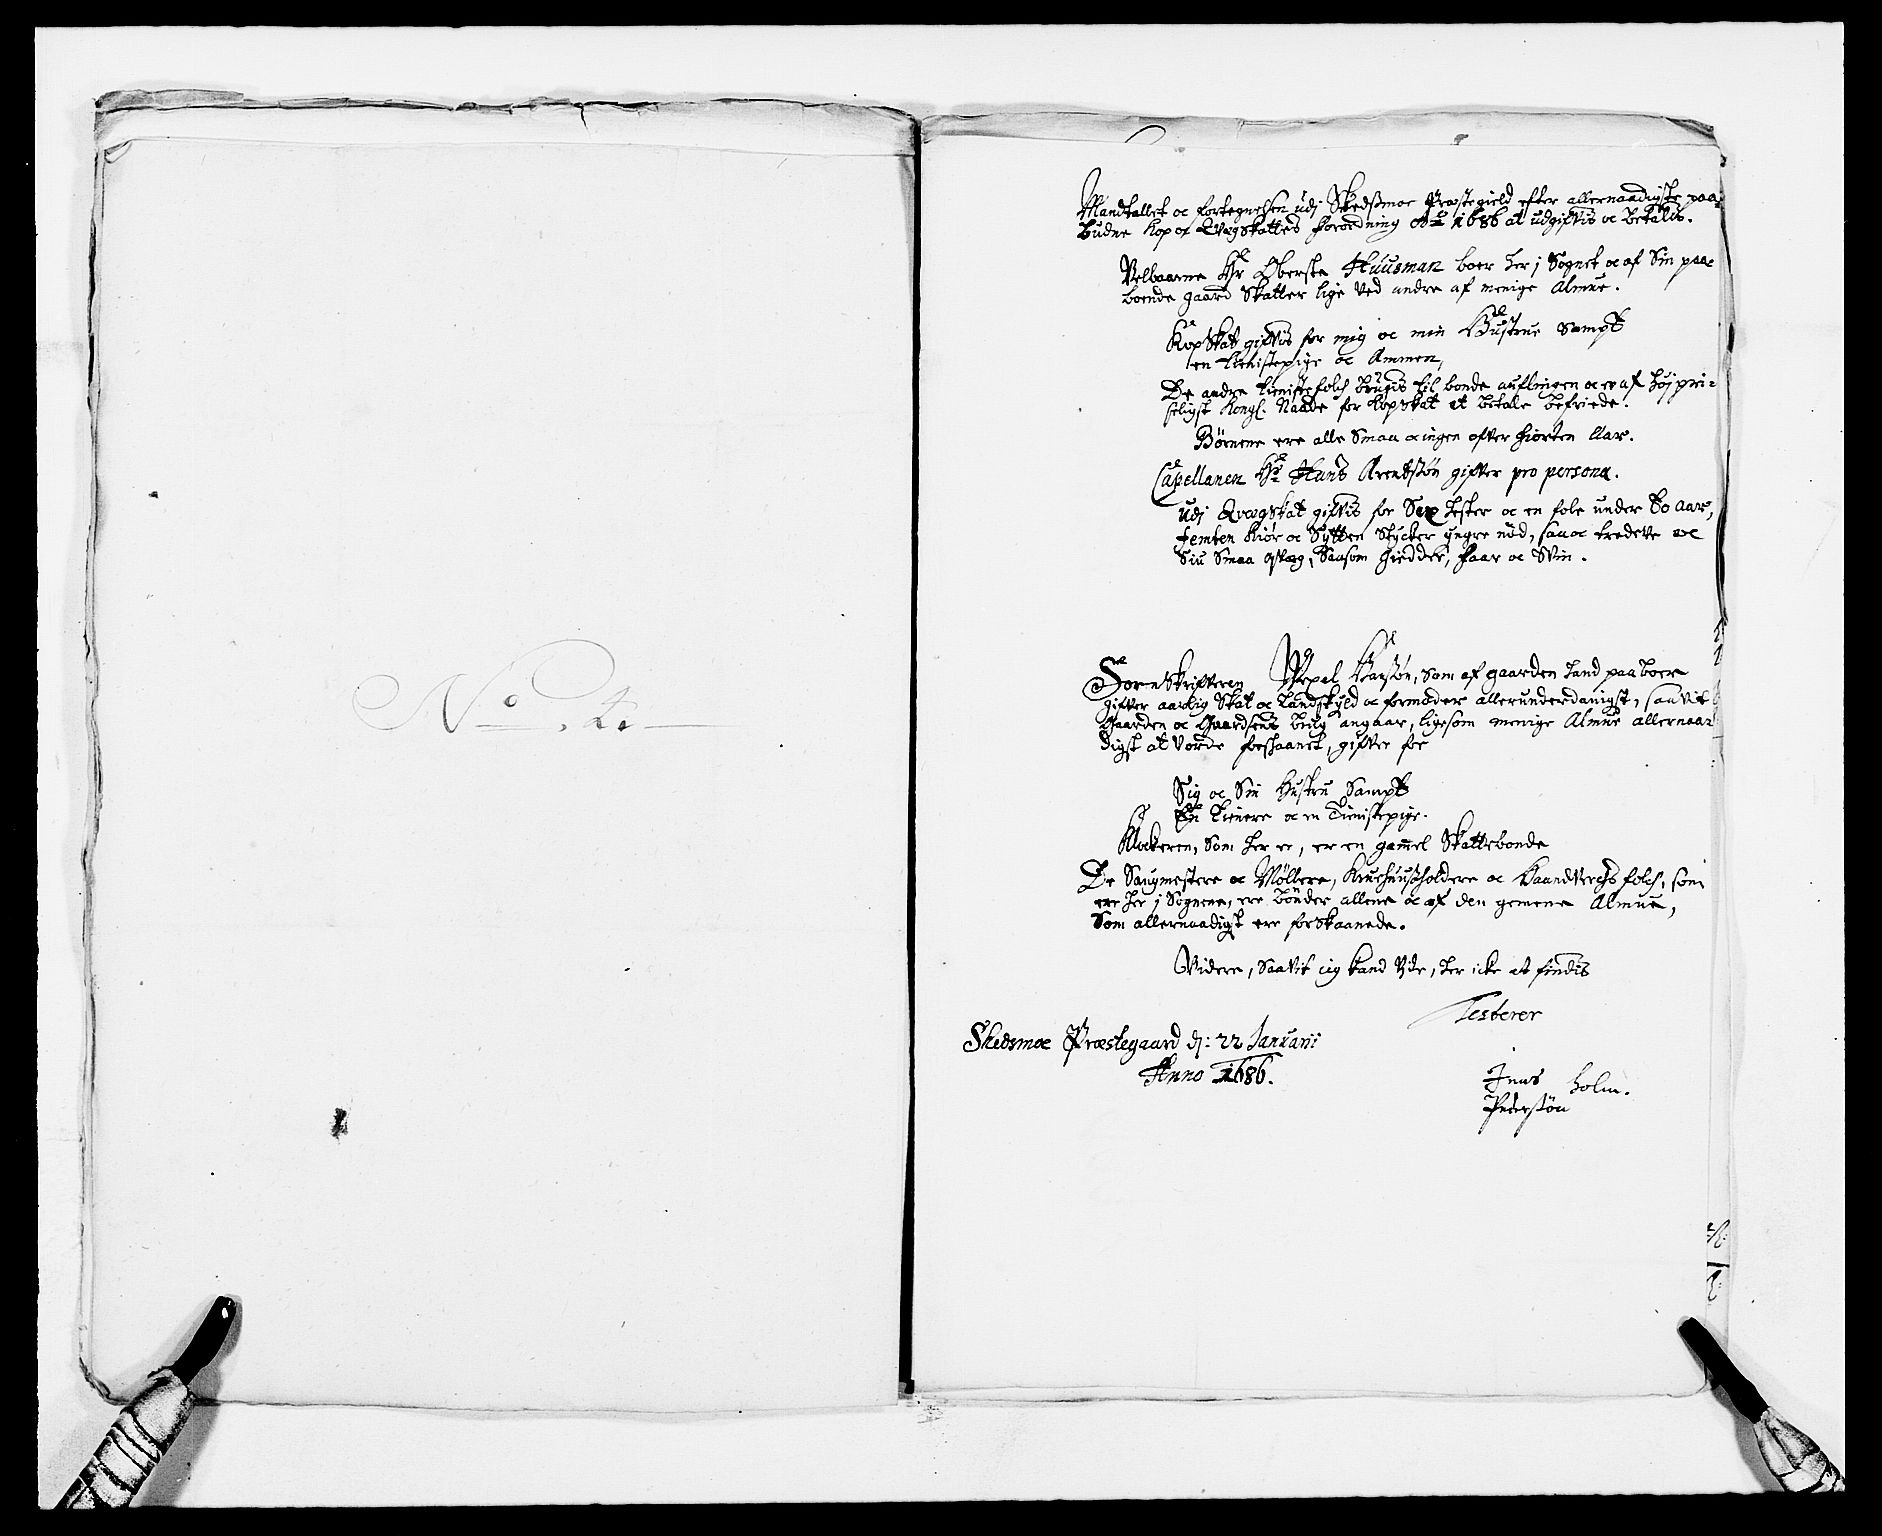 No. 4.
Mandtallet oc fortegnelsen udj Skedsmoe Præstegield efter allernaadigste paa-
budne Kop oc Qvægskattes forordning Ao 1686 at udgifvis oc betalis.
Velbaarne Hr Oberste Huusman boer her j Sognet oc af Sin paa-
boende gaard Skatter lige ved andre af menige Almue.
KopSkat gifvis for mig oc min Hustrue Sampt
en tienistepige oc Ammen,
De andre tienistefolch brugis til bonde auflingen oc er af høj pri-
seligst Kongl. Naade for KopSkat at betale befriede.
Børnene ere alle Smaa oc ingen ofver fiorten Aar.
Capellanen Hr Hans Arentsøn gifver pro persona.
Udj QvægSkat gifvis for Sex hester oc en fole under to aar,
femten Kiør oc Sytten Stycker yngre nød, saa oc tredeve oc
Siu Smaa qvæg, Saasom giedder, faar oc Svin.
SorenSkrifveren, Som af gaarden hand paaboer
gifver aarlig Skat oc Landskyld oc formoder allerunderdanigst, saavit
Gaarden oc Gaardsens brug angaar, ligesom menige Almue allernaa-
digst at vorde forskaanet, gifver for
Sig oc Sin Hustru Sampt
En tienere oc en Tienistepige.
Klockeren, Som her er, er en gammel Skattebonde
De Saugmestere oc Møllere, Kruehuusholdere oc Haandverchsfolch, som
ere her j Sognene, ere bønder allene oc af den gemene Almue,
Som allernaadigst ere forskaanede.
Videre, Saavit jeg kand vide, her icke at findis
Testerer
Skedsmoe Præstegaard dj: 22 Januarii
Anno 1686.
Jens Holm.
Pedersøn